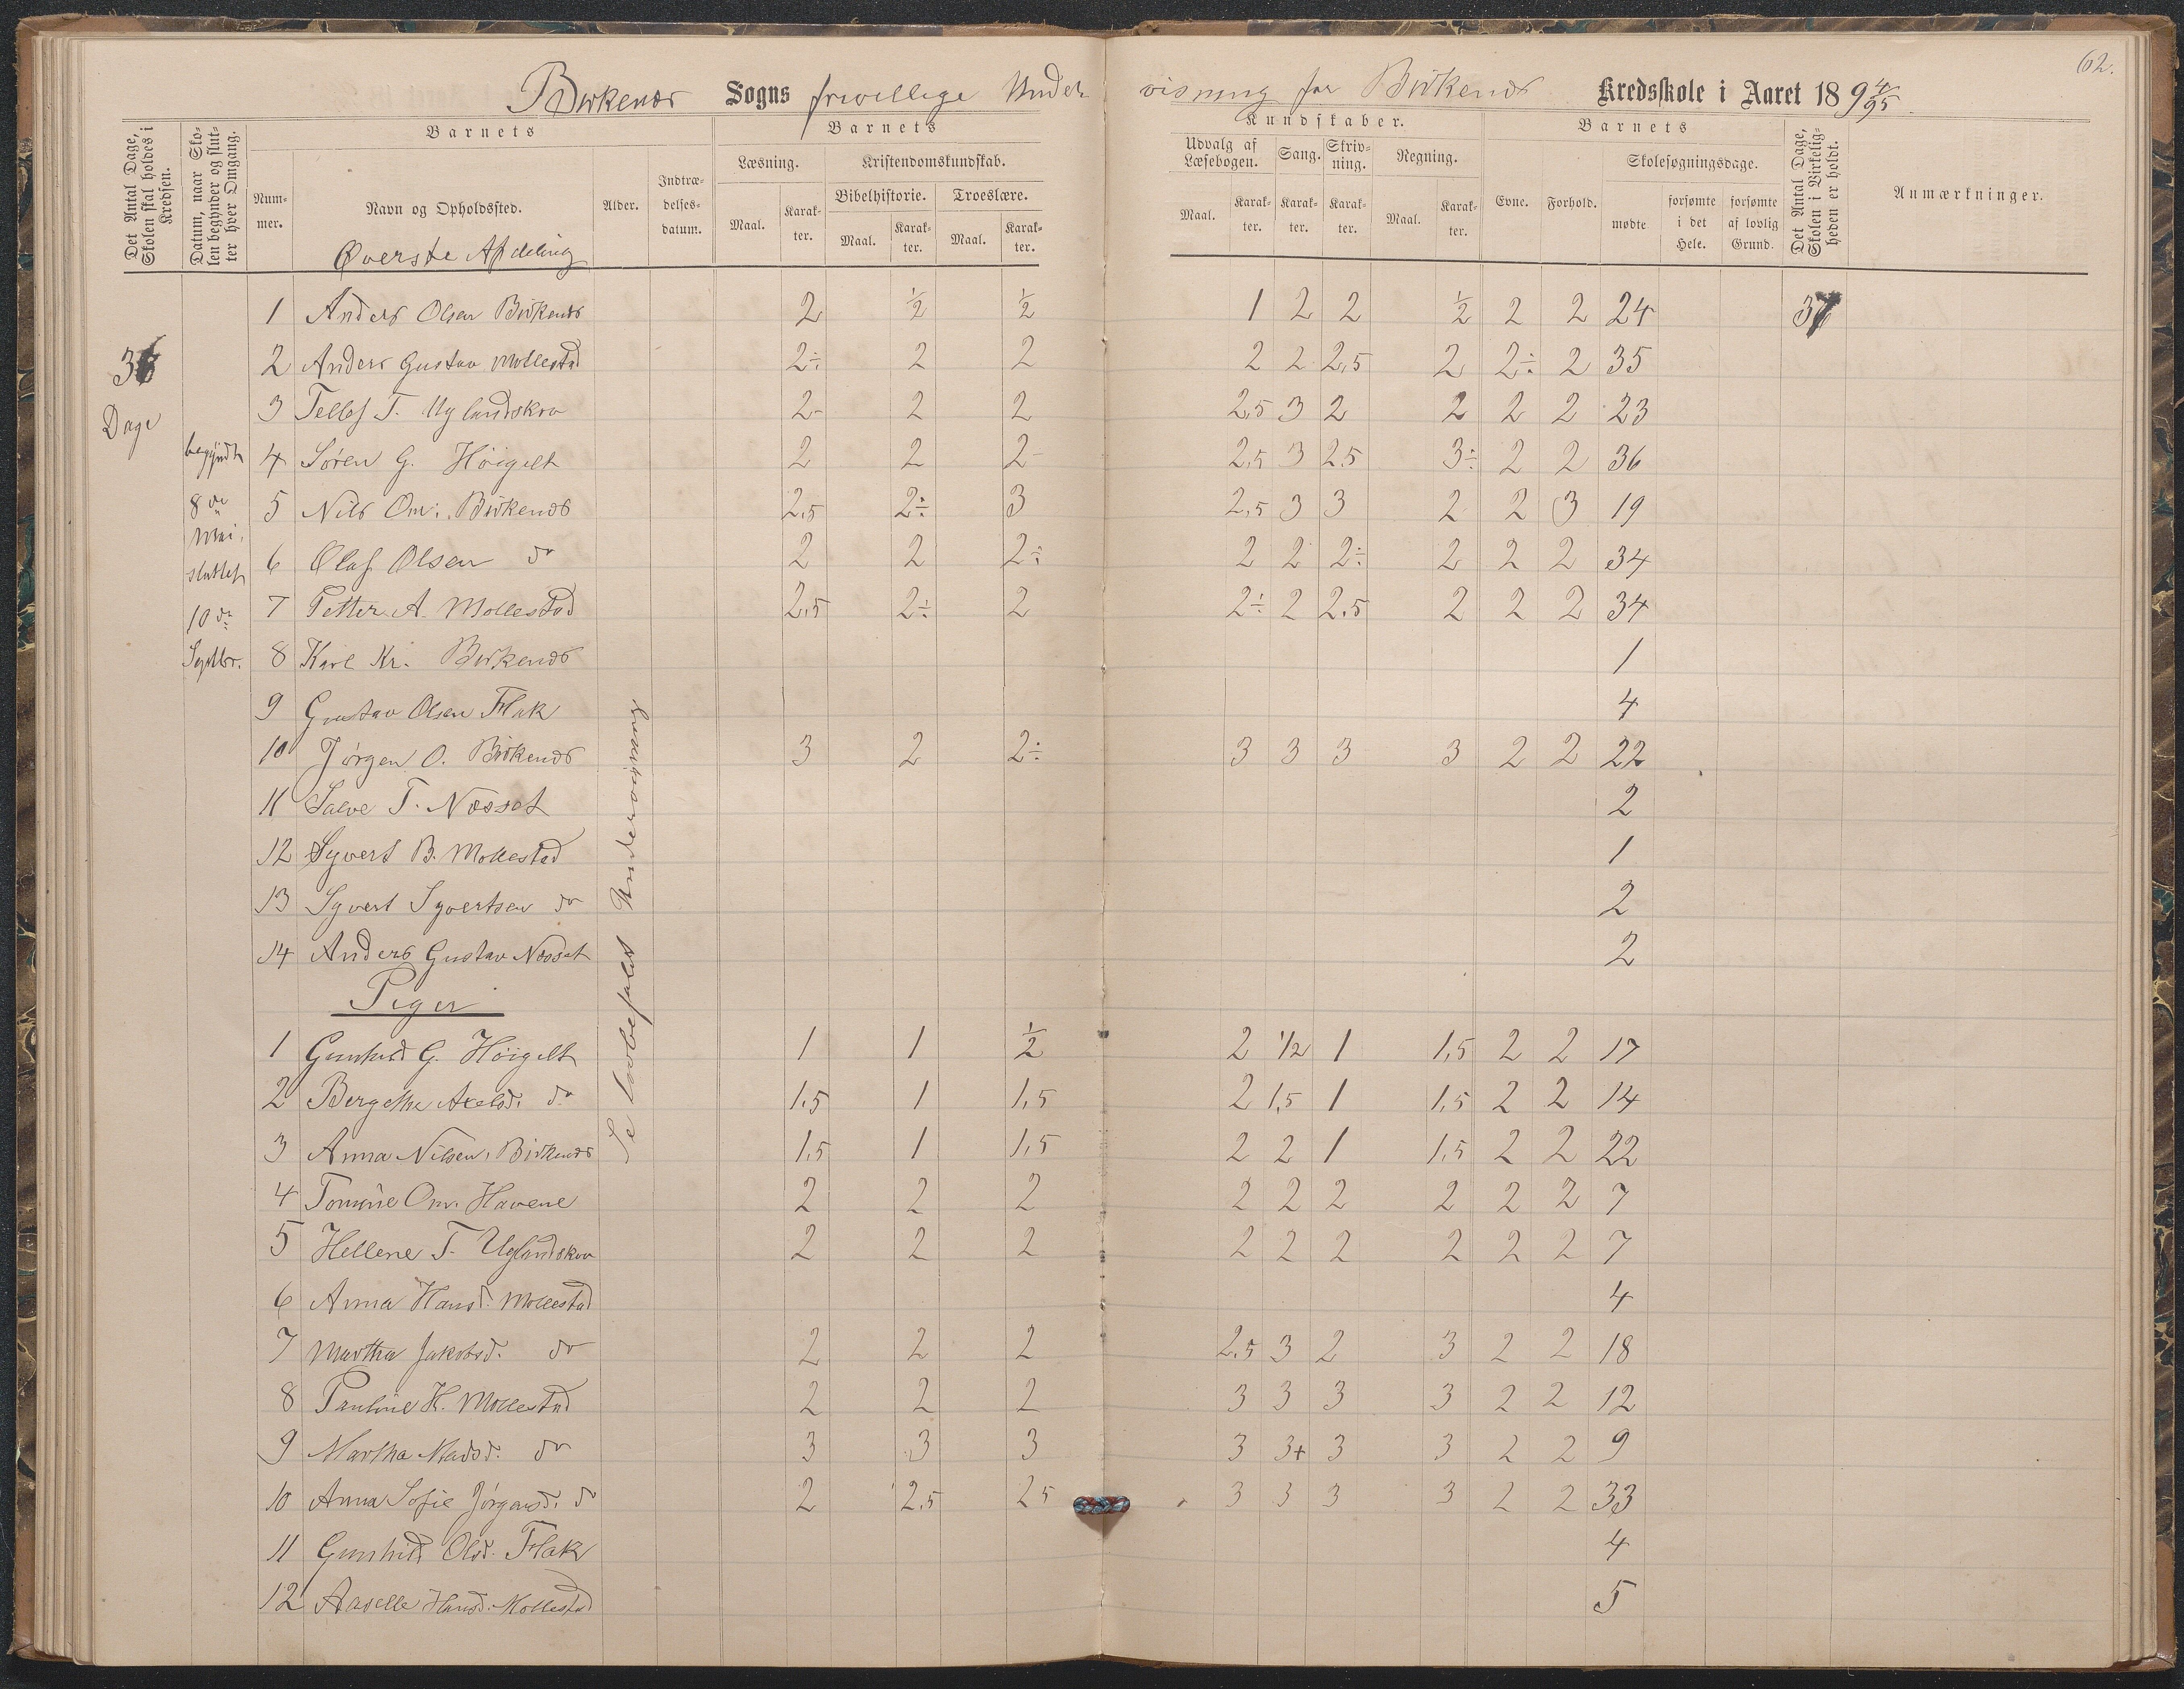 62.
Birkenæs Sogns frivillige Undervisning for Birkenæs Kredsskole i Aaret 1894/95.
Det Antal Dage, Skolen skal holdes i Kredsen.
Datum, naar Skolen begynder og slutter hver Omgang.
Barnets
Barnets
Kundskaber.
Barnets
Det Antal Dage, Skolen i Virkeligheden er holdt.
Anmærkninger.
Nummer.
Navn og Opholdssted.
Alder.
Indtrædelsesdatum.
Læsning.
Kristendomskundskab.
Bibelhistorie. Troeslære.
Maal. Karakter. Maal. Karakter. Maal. Karakter.
Udvalg af Læsebogen. Sang. Skrivning. Regning.
Maal. Karakter. Karakter. Karakter. Maal. Karakter.
Evne. Forhold.
Skolesøgningsdage.
mødte forsømte i det Hele. forsømte af lovlig Grund.
Øverste Afdeling
36 Dage
begyndt 8de Mai. sluttet 10de Septbr.
Se Lovbefalet Undervisning
1 Anders Olsen Birkenæs 2 ½ ½ 1 2 2 ½ 2 2 24 37
2 Anders Gustav Mollestad 2÷ 2 2 2 2 2,5 2 2÷ 2 35
3 Tellef T. Uglandskra 2- 2 2 2,5 3 2 2 2 2 23
4 Søren G. Høigelt 2 2 2- 2,5 3 2,5 3÷ 2 2 36
5 Nils Om. Birkenæs 2,5 2÷ 3 2,5 3 3 2 2 3 19
6 Olaf Olsen do 2 2 2÷ 2 2 2÷ 2 2 2 34
7 Petter A. Mollestad 2,5 2÷ 2 2÷ 2 2,5 2 2 2 34
8 Karl Kr. Birkenæs 1
9 Gustav Olsen Flak 4
10 Jørgen O. Birkenæs 3 2 2÷ 3 3 3 3 2 2 22
11 Salve T. Næsset 2
12 Syvert B. Mollestad 1
13 Syvert Syvertsen do 2
14 Anders Gustav Næsset 2
Piger
1 Gunhild G. Høigelt 1 1 ½ 2 1/2 1 1,5 2 2 17
2 Bergethe Axelsd. do 1,5 1 1,5 2 1,5 1 1,5 2 2 14
3 Anna Nilsen, Birkenæs 1,5 1 1,5 2 2 1 1,5 2 2 22
4 Tomine Om. Havene 2 2 2 2 2 2 2 2 2 7
5 Hellene T. Uglandskra 2 2 2 2 2 2 2 2 2 7
6 Anna Hansd. Mollestad 4
7 Martha Jakobsd. do 2 2 2 2,5 3 2 3 2 2 18
8 Pauline H. Mollestad 2 2 2 3 3 3 3 2 2 12
9 Martha Madsd. do 3 3 3 3 3+ 3 3 2 2 9
10 Anna Sofie Jørgensd. do 2 2,5 2,5 3 3 3 3 2 2 33
11 Gunhild Olsd. Flak 4
12 Aaselle Hansd. Mollestad 5